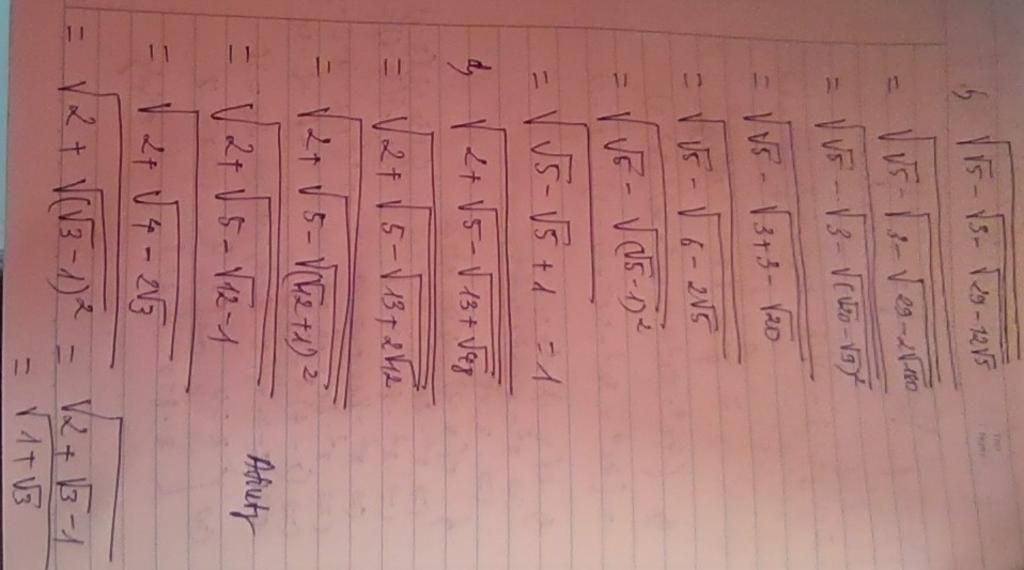 b, √(√5 - √(3 - √(29 - 12√5)))
= √(√5 - √(3 - √(29 - 2√180)))
= √(√5 - √(3 - √(√20 - √9)²))
= √(√5 - √(3+3 - √20))
= √(√5 - √(6 - 2√5))
= √(√5 - √(√5-1)²)
= √(√5 - √5 + 1) = 1
d, √(2 + √(5 - √(13 + √48)))
= √(2 + √(5 - √(13 + 2√12)))
= √(2 + √(5 - √(√12 + 1)²))
= √(2 + √(5 - √12 - 1))
= √(2 + √(4 - 2√3))
= √(2 + √(√3 - 1)²) = √(2 + √3 - 1)
= √(1 + √3)